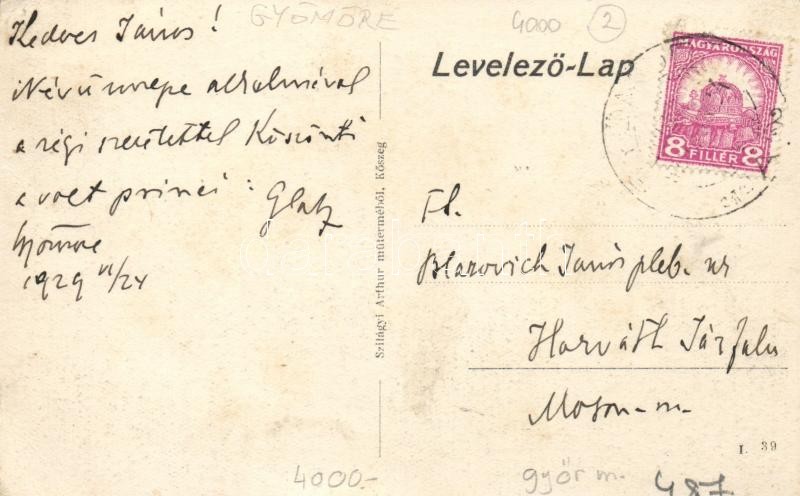 GYÖMÖRE
4000 2
Kedves János!
Névünnepe alkalmával
a régi szeretettel köszönti
a volt princi: Glatz
Gyömöre
1929 VI/24
Szilágyi Arthur műterméből, Kőszeg
Levelező-Lap
MAGYARORSZÁG
8 FILLÉR 8
Ft.
Blazovich János pleb. úr
Horváth Járfalu
Moson-m.
I. 39
4000.-
győr m. 487